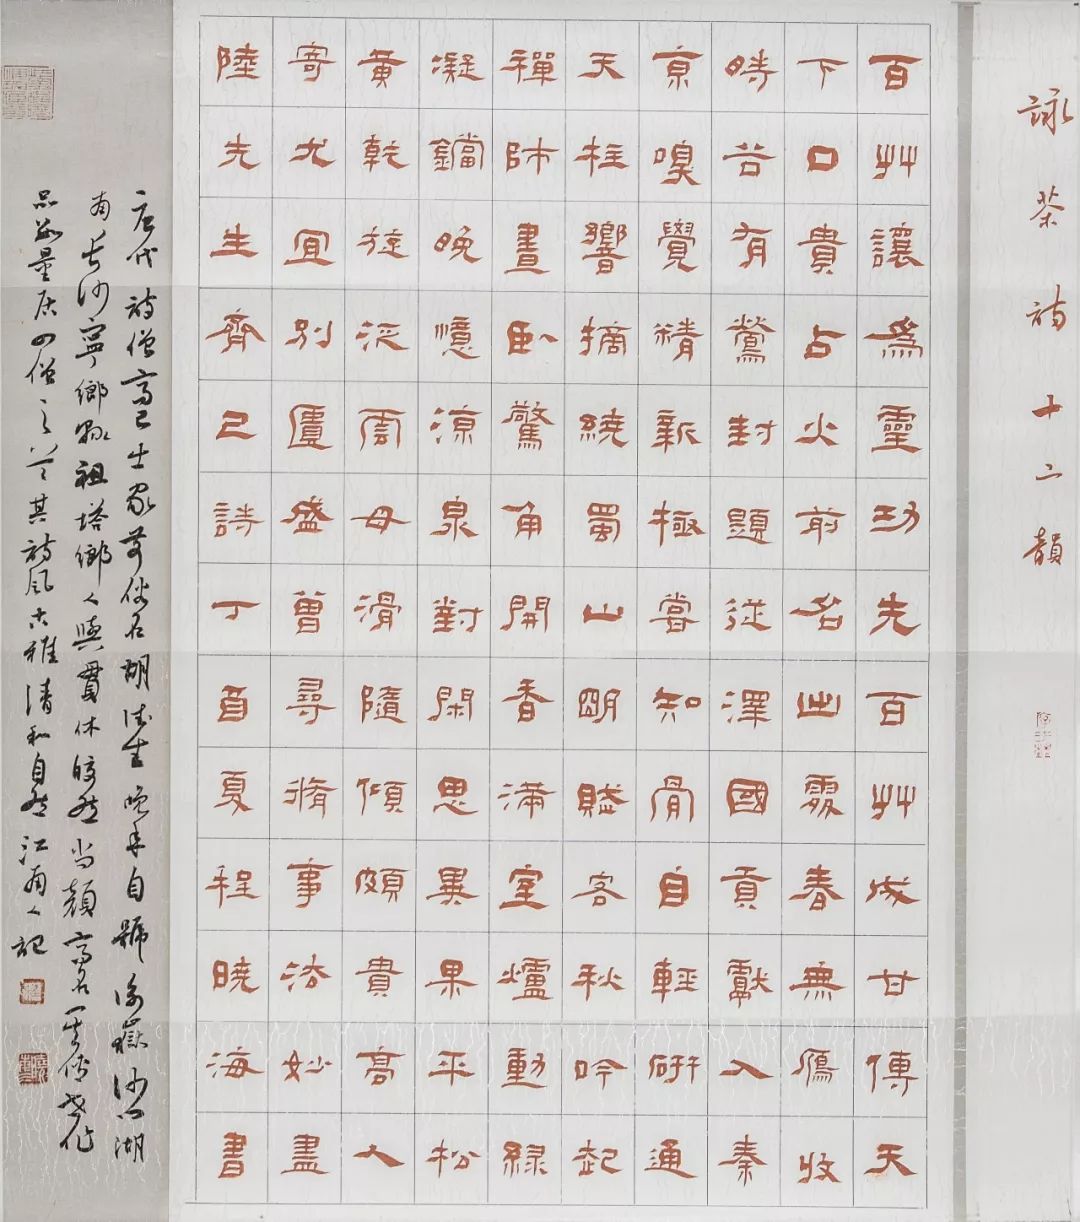 詠茶詩十二韻
百艸讓為靈功先百艸成甘傳天
下口貴占火前名出處春無鴈收
時谷有鶯封題從澤國貢獻入秦
京嗅覺精新極嘗知骨自輕研通
天柱響摘繞蜀山明賦客秋吟起
禪師晝臥驚角開香滿室爐動綠
凝鐺晚憶涼泉對閑思異果平松
黃乾旋泛雲母滑隨傾頗貴高人
寄尤宜別匱盛曾尋脩事法妙盡
陸先生齊己詩丁酉夏程曉海書
唐代詩僧齊己出家前俗名胡得生晚年自號衡嶽沙門湖
南長沙寧鄉縣祖塔鄉人與貫休皎然尚顏齊名其傳世作
品數量居四僧之首其詩風古雅清和自然江南人記